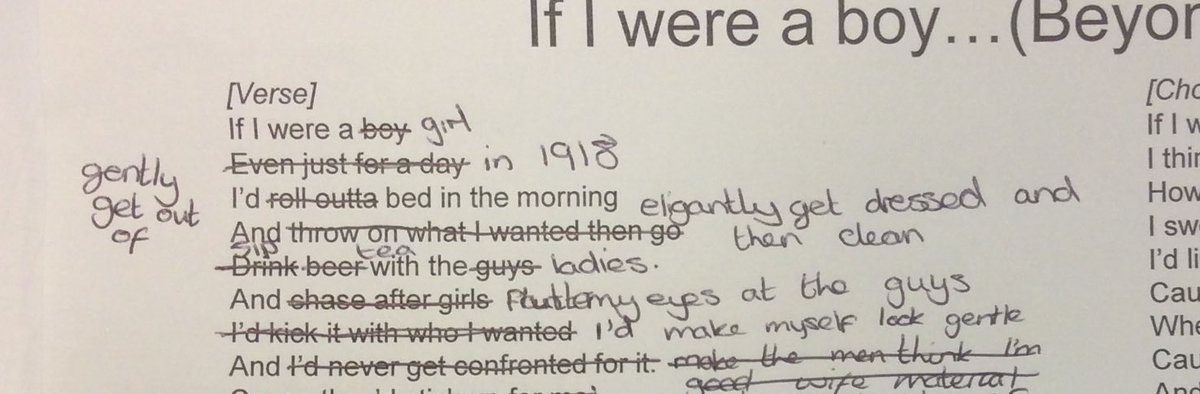 If I were a boy...(Beyon
[Verse]
If I were a boy girl
Even just for a day in 1918
gently get out of
I'd roll outta bed in the morning elgantly get dressed and
And throw on what I wanted then go then clean
sip tea
Drink beer with the guys ladies.
And chase after girls my eyes at the guys
I'd kick it with who I wanted I'd make myself look gentle
And I'd never get confronted for it. make the men think I'm
good wife material
[Cho
If I w
I thin
How
I swe
I'd li
Cau
Whe
Cau